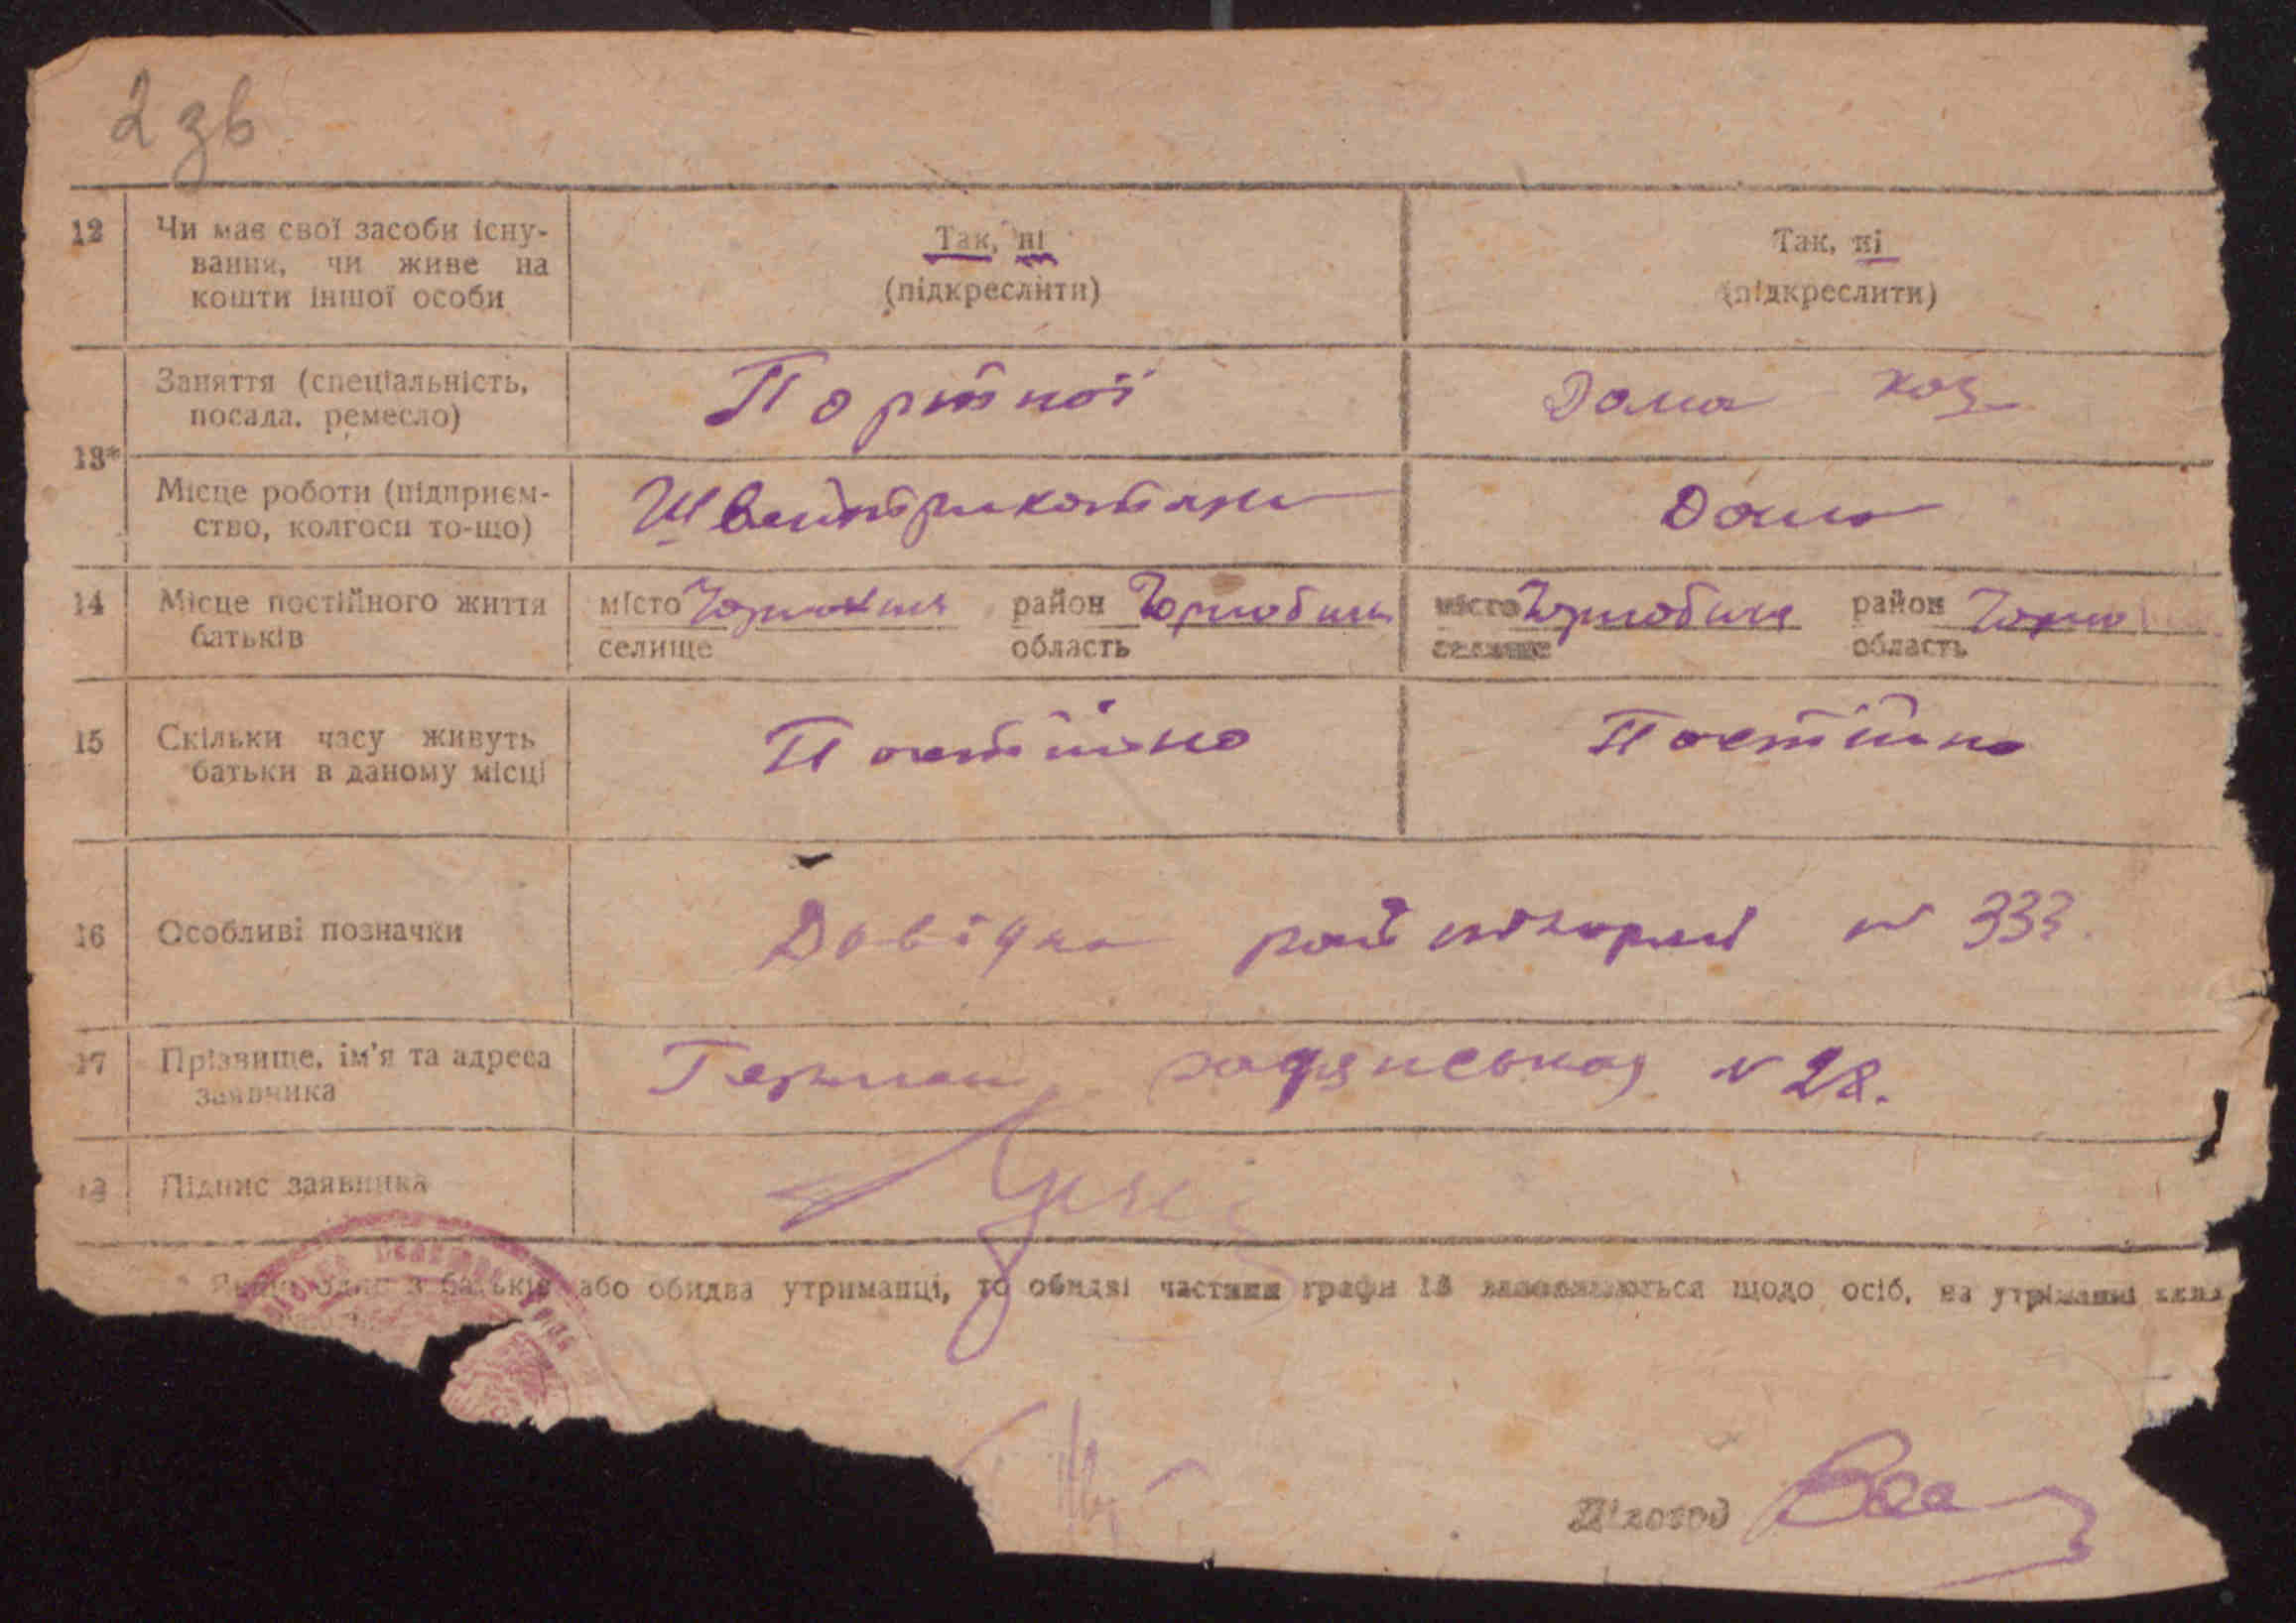 2 зв
12 Чи має свої засоби існу-
вання, чи живе на
кошти іншої особи
Так, ні
(підкреслити)
Так, ні
(підкреслити)
13*
Заняття (спеціальність,
посада. ремесло)
Портної
Дома хоз
Місце роботи (підприєм-
ство, колгосп то-що)
Дома
14 Місце постійного життя
батьків
місто
селище
район Чорнобиль
область
місто Чорнобиль
селище
район Чорно
область
15 Скільки часу живуть
батьки в даному місці
Постійно
Постійно
16 Особливі позначки
Довідка № 333.
17 Прізвище, ім'я та адреса
заявника
Герман радянська № 28.
18 Підпис заявника
* Якщо один з батьків або обидва утриманці, то обидві частини графи 13 заповнюються щодо осіб, на утриманні яких
Діловод